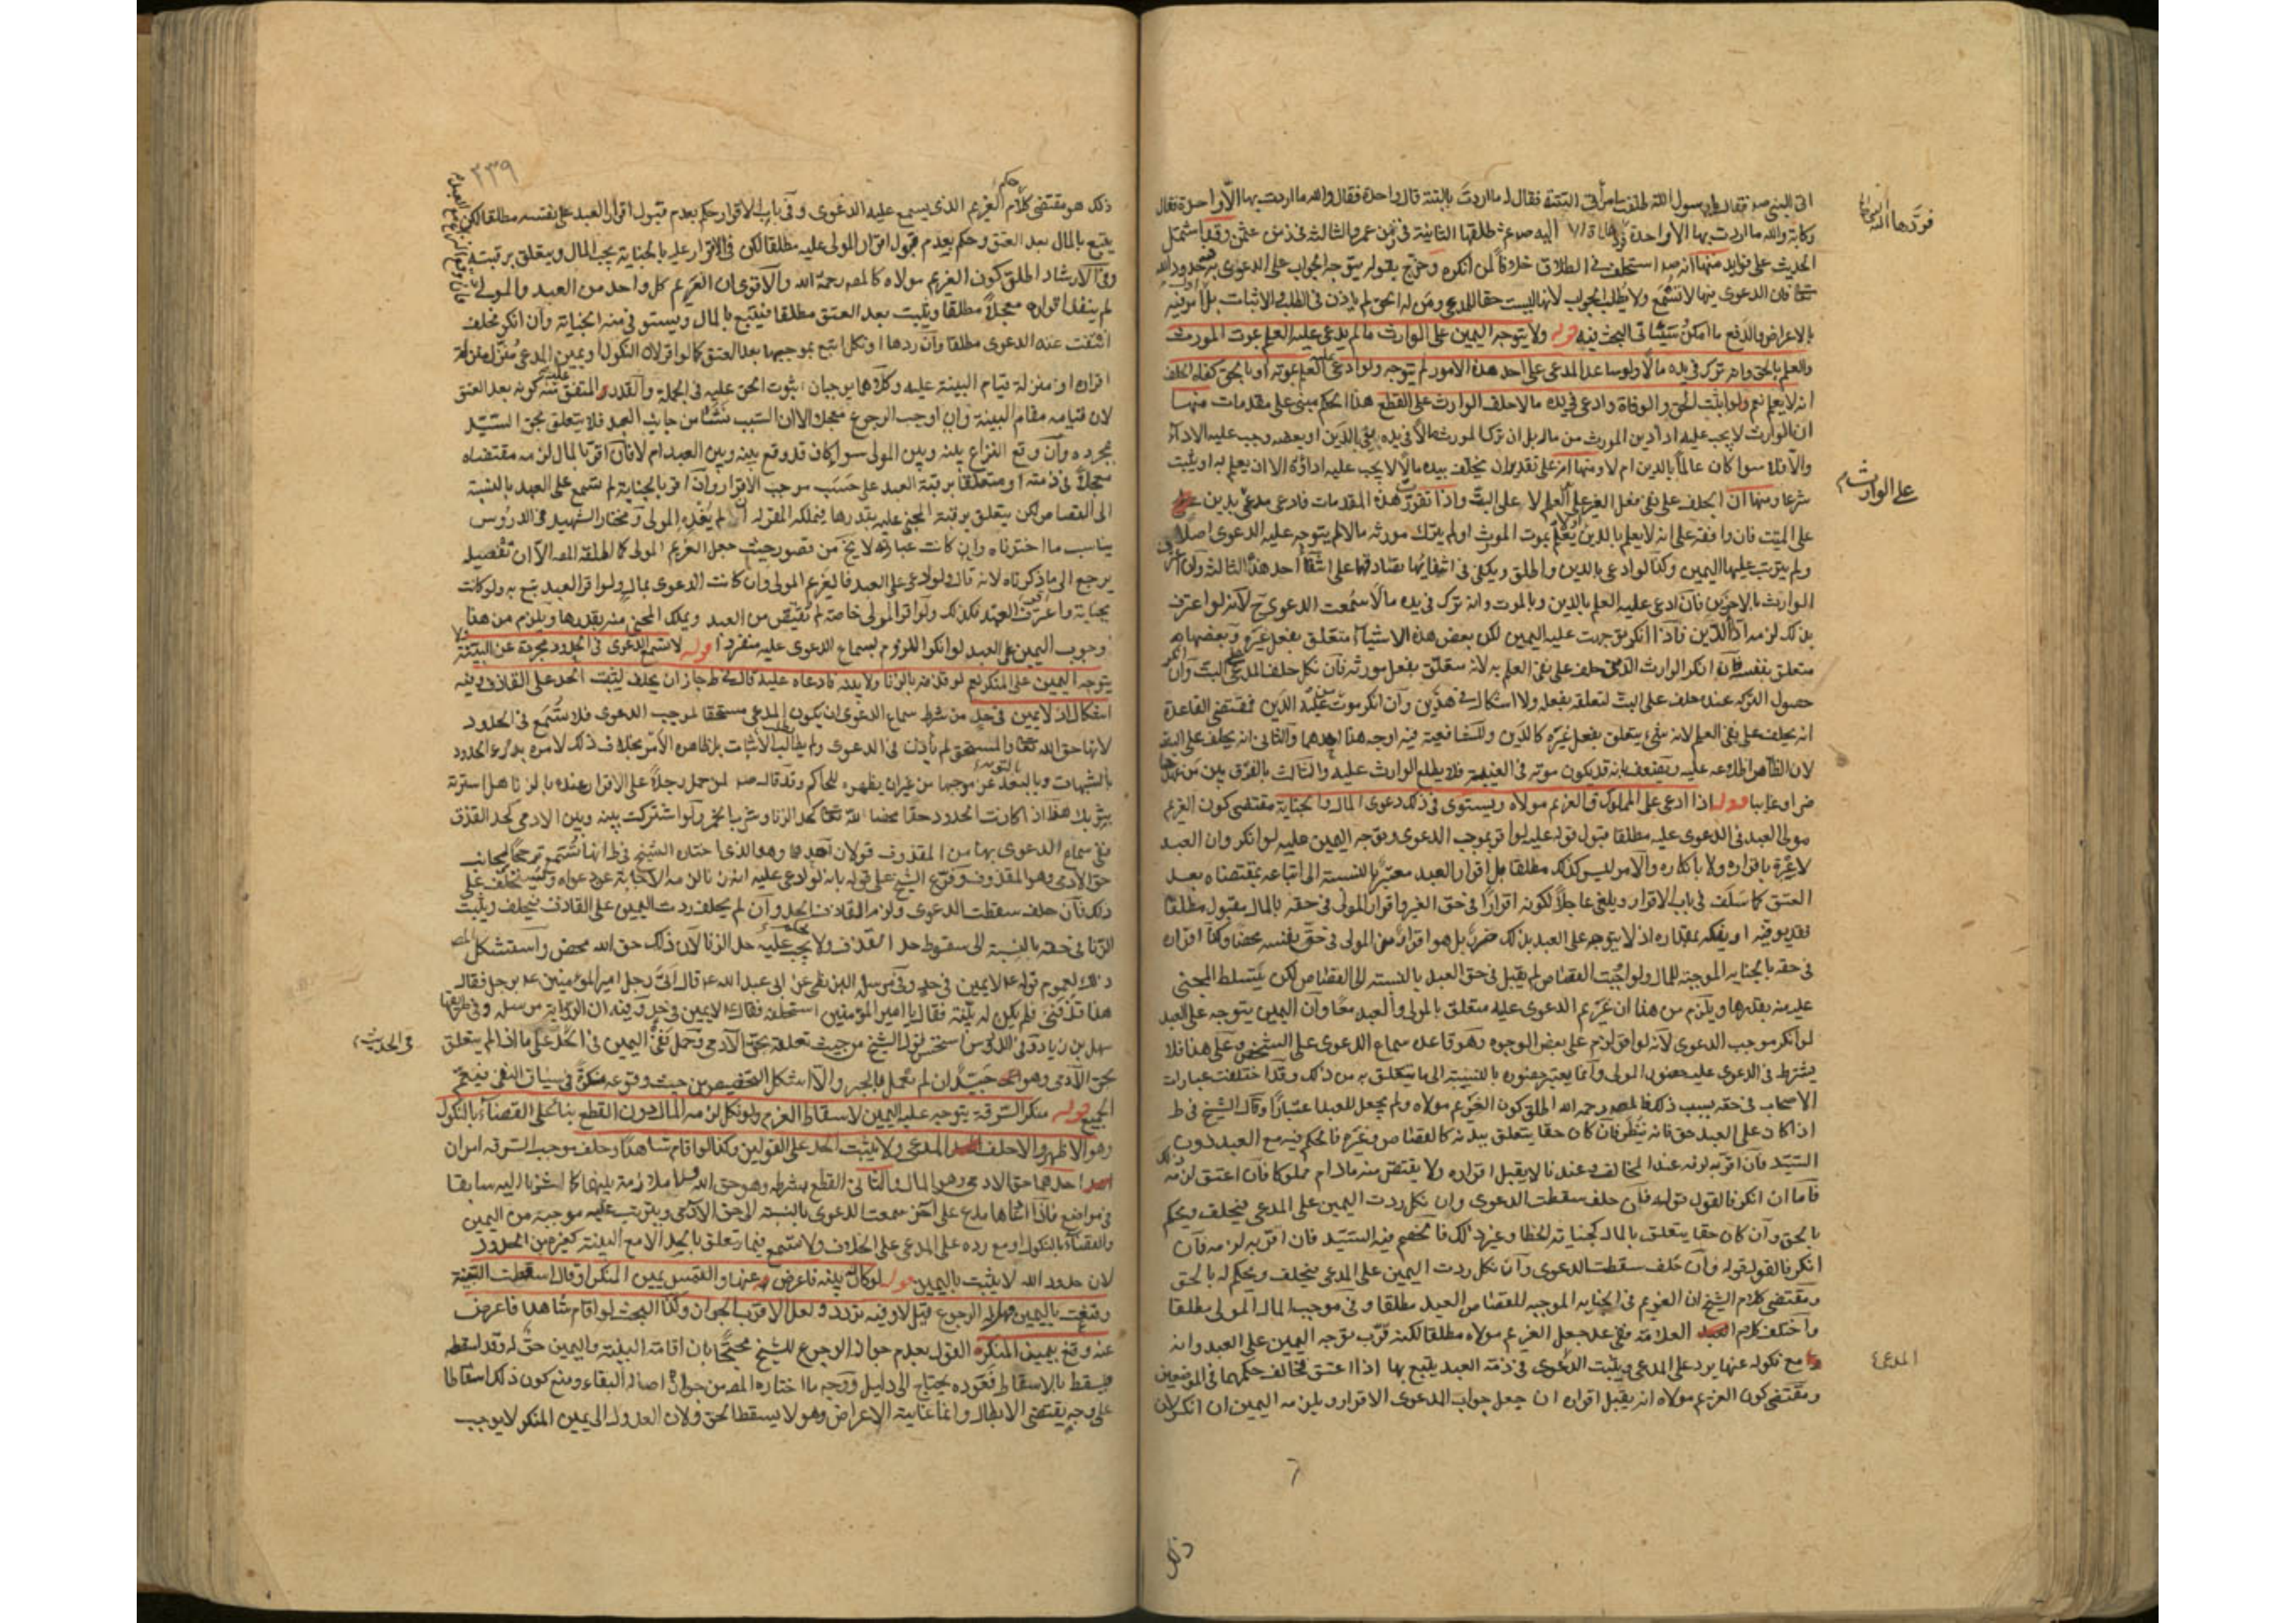 اتى النبي صم فقال يا رسول الله طلقت امرأتى البتة فقال له ما اردت بالبتة قال واحدة فقال والله ما اردت بها الا واحدة فقال
ركانة والله ما اردت بها الا واحدة فردها اليه صم ثم طلقها الثانية في زمن عمر والثالثة في زمن عثمن وقد اشتمل
فردها اليه النبي
الحديث على فوايد منها انه صم استحلف في الطلاق خلافا لمن انكره وخرج بقوله يتوجه الجواب على الدعوى حدود الله
فان الدعوى فيها لا تسمع ولا يطلب الجواب لانها ليست حقا للمدعي ومن له الحق لم ياذن في الطلب والاثبات بل امر فيه
بالاعراض والدفع ما امكن وسياتي البحث فيه قوله ولا يتوجه اليمين على الوارث ما لم يدعي عليه العلم بموت المورث
والعلم بالحق وانه ترك في يده مالا ولو ساعد المدعي على احد هذه الامور لم يتوجه ولو ادعى عليه العلم بموته او بالحق كفاه الحلف
انه لا يعلم نعم لو اثبت الحق والوفاة وادعى في يده مالا حلف الوارث على القطع هذا الحكم مبني على مقدمات منها
ان الوارث لا يجب عليه اداء دين المورث من ماله بل ان ترك المورث مالا في يده يفي بالدين او بعضه وجب عليه الاداء
والا فلا سوا كان عالما بالدين ام لا ومنها انه على تقدير ان يخلف بيده مالا لا يجب عليه اداؤه الا ان يعلم به او يثبت
شرعا ومنها ان الحلف على نفي فعل الغير على العلم لا على البت واذا تقررت هذه المقدمات فادعى مدعي بدين
على الوارث
على الميت فان وافقه على انه لا يعلم بالدين او لا يعلم بموت المورث او لم يترك مورثه مالا لم يتوجه عليه الدعوى اصلا
ولم يترتب عليها اليمين وكذا لو ادعى بالدين واطلق ويكفي في انتفائها تصادقهما على انتفاء احد هذه الثالث وان
الوارث بالاخرين فان ادعى عليه العلم بالدين وبالموت وانه ترك في يده مالا سمعت الدعوى ح لانه لو اعترف
بذلك لزمه اداء الدين فاذا انكر توجهت عليه اليمين لكن بعض هذه الاشياء متعلق بفعل غيره وبعضها
متعلق بنفسه فان انكر الوارث الدين حلف على نفي العلم به لانه متعلق بفعل مورثه فان نكل حلف المدعي على البت وان انكر
حصول التركه عنده حلف على البت لتعلقه بفعله ولا اشكال في هذين وان انكر موت من عليه الدين فمقتضى القاعدة
انه يحلف على نفي العلم لانه شيء يتعلق بفعل غيره كالدين وللشافعية فيه اوجه هذا احدهما والثاني انه يحلف على البت
لان الظاهر اطلاعه عليه ويضعف بانه قد يكون موته في الغيبة فلا يطلع الوارث عليه والثالث بالفرق بين من
حاضرا وغايبا قوله اذا ادعى على المملوك فالغريم مولاه ويستوى في ذلك دعوى المال والجناية مقتضى كون الغريم
مولى العبد في الدعوى عليه مطلقا قبول قوله عليه لو اقر بموجب الدعوى وتوجه اليمين عليه لو انكر وان العبد
لا عبرة باقراره ولا بانكاره والامر ليس كذلك مطلقا بل اقرار العبد معتبر بالنسبة الى اتباعه بمقتضاه بعد
العتق كما سلف في باب الاقرار ويلغى عاجلا لكونه اقرارا في حق الغير واقرار المولى في حقه بالمال مقبول مطلقا
فقد يوفيه او يفكه بمقداره اذ لا يتوجه على العبد بذلك ضرر بل هو اقرار من المولى في حق نفسه محضا وكذا اقراره
في حقه بالجنايه الموجبة للمال ولو اوجبت القصاص لم يقبل في حق العبد بالنسبة الى القصاص لكن يتسلط المجني
عليه منه بقدرها ويلزم من هذا ان غريم الدعوى عليه متعلق بالمولى والعبد معا وان اليمين يتوجه على العبد
لو انكر موجب الدعوى لانه لو اقر لزم على بعض الوجوه وهو قاعدة سماع الدعوى على الشخص وعلى هذا فلا
يشترط في الدعوى عليه حضور المولى وانما يعتبر حضوره بالنسبة الى ما يتعلق به من ذلك وقد اختلفت عبارات
الاصحاب في حقه بسبب ذلك فالمص رحمه الله اطلق كون الغريم مولاه ولم يجعل للعبد اعتبارا وقال الشيخ في ط
اذا كان على العبد حق فانه ينظر فان كان حقا يتعلق ببدنه كالقصاص وغيره فالحكم فيه مع العبد دون
السيد فان اقر به لزمه عند المخالف وعندنا لا يقبل اقراره ولا يقتص منه ما دام مملوكا فان اعتق لزمه ذلك
فاما ان انكر فالقول قوله فان حلف سقطت الدعوى وان نكل ردت اليمين على المدعي فيحلف ويحكم
بالحق وان كان حقا يتعلق بالمال كجناية الخطا وغير ذلك فالخصم فيه السيد فان اقر به لزمه فان
انكر فالقول قوله وان حلف سقطت الدعوى وان نكل ردت اليمين على المدعي فيحلف ويحكم له بالحق
ومقتضى كلام الشيخ ان الغريم في الجنايه الموجبه للقصاص العبد مطلقا وفي موجب المال المولى مطلقا
واختلف كلام العلامة ففي عد جعل الغريم مولاه مطلقا لكنه قرب توجه اليمين على العبد وانه
مع نكوله عنها يرد على المدعي ويثبت الدعوى في ذمة العبد يتبع بها اذا اعتق فخالف حكمهما في الموضعين
المدعي
ومقتضى كون الغريم مولاه انه يقبل اقراره ان جعل جواب الدعوى الاقرار ويلزمه اليمين ان انكر لان
ذلك
٢٣٩
ذلك هو مقتضى حكم كلام الغريم الذي يسمع عليه الدعوى وفي باب الاقرار حكم بعدم قبول اقرار العبد على نفسه مطلقا لكن
يتبع بالمال بعد العتق وحكم بعدم قبول اقرار المولى عليه مطلقا لكن في الاقرار عليه بالجناية يجب المال ويتعلق برقبته
وفي الارشاد اطلق كون الغريم مولاه كالمص رحمه الله والاقوى ان الغريم كل واحد من العبد والمولى
لم ينفذ اقراره معجلا مطلقا ويثبت بعد العتق مطلقا فيتبع بالمال ويستوفى منه الجناية وان انكر فحلف
انتفت عنه الدعوى مطلقا وان ردها او نكل اتبع بموجبها بعد العتق كما لو اقر لان النكول ويمين المدعي منزل منزلة
اقراره او منزلة قيام البينة عليه وكلاهما يوجبان ثبوت الحق عليه في الجملة والقدر المتفق عليه كونه بعد العتق
لان قيامه مقام البينة وان اوجب الرجوع معجلا الا ان السبب نشأ من جانب العبد فلا يتعلق بحق السيد
بمجرده وان وقع النزاع بينه وبين المولى سوا كان قد وقع بينه وبين العبد ام لا فان اقر بالمال لزمه مقتضاه
معجلا في ذمته او متعلقا برقبة العبد على حسب موجب الاقرار وان اقر بالجناية لم تسمع على العبد بالنسبة
الى القصاص لكن يتعلق برقبة المجني عليه بقدرها فيملكه المقر له ان لم يفده المولى ومختار الشهيد في الدروس
يناسب ما اخترناه وان كانت عبارته لا يخ من قصور حيث جعل الغريم المولى كما اطلقه المص الا ان تفصيله
يرجع الى ما ذكرناه لانه قال ولو ادعى على العبد فالغريم المولى وان كانت الدعوى بمال ولو اقر العبد تبع به ولو كانت
بجناية واعترف العبد فكذلك ولو اقر المولى خاصة لم يقتص من العبد ويملك المجني منه بقدرها ويلزم من هذا
وجوب اليمين على العبد لو انكر اللزوم لسماع الدعوى عليه منفردا قوله لا تسمع الدعوى في الحدود مجردة عن البينة ولا
يتوجه اليمين على المنكر نعم لو قذفه بالزنا ولا بينة فادعاه عليه قال في ط جاز ان يحلف ليثبت الحد على القاذف وفيه
اشكال اذ لا يمين في حد من شرط سماع الدعوى ان يكون المدعي مستحقا لموجب الدعوى فلا تسمع في الحدود
لانها حق الله تعا والمستحق لم يأذن في الدعوى ولم يطالب الاثبات بل ظاهره الامر بخلاف ذلك لامره بدرء الحدود
بالشبهات وبالتوبة عن موجبها من غير ان يظهره للحاكم وقد قال صم لمن حمل رجلا على الاقرار عنده بالزنا هلا سترته
بثوبك هذا اذا كانت الحدود حقا محضا لله تعا كحد الزنا وشرب الخمر ولو اشتركت بينه وبين الادمي كحد القذف
ففي سماع الدعوى بها من المقذوف قولان احدهما وهو الذي اختاره الشيخ في ط انها تسمع ترجيحا لجانب
حق الادمي وهو المقذوف وفرع الشيخ على قوله بانه لو ادعى عليه انه زنا لزمه الاجابة عن دعواه ويحلف على
ذلك فان حلف سقطت الدعوى ولزم القاذف الحد وان لم يحلف ردت اليمين على القاذف فيحلف ويثبت
الزنا في حقه بالنسبة الى سقوط حد القذف ولا يحكم عليه بحد الزنا لان ذلك حق الله محض واستشكل المص
ذلك لعموم قوله ع لا يمين في حد وفي مرسل البزنطي عن ابي عبد الله ع قال اتى رجل امير المؤمنين ع برجل فقال
هذا قذفني فلم يكن له بينة فقال يا امير المؤمنين استحلفه فقال ع لا يمين في حد وفيه ان الرواية مرسله وفي طريقها
سهل بن زياد وفي الدروس استحسن قول الشيخ من حيث تعلقه بحق الآدمي وحمل نفي اليمين في الحد على ما اذا لم يتعلق
في الحديث
بحق الآدمي وهو جيد ان لم نعمل بالخبر والا اشكل التخصيص من حيث وقوعه منكرة في سياق النفي فيعم
الجميع قوله منكر السرقة يتوجه عليه اليمين لاسقاط الغرم ولو نكل لزمه المال دون القطع بناء على القضاء بالنكول
وهو الاظهر والا حلف المدعي ولا يثبت الحد على القولين وكذا لو اقام شاهدا وحلف موجب السرقه امران
احدهما حق الادمي وهو المال والثاني القطع بشرطه وهو حق الله ولا ملازمة بينهما كما اشرنا اليه سابقا
في مواضع فاذا ادعاها مدع على آخر سمعت الدعوى بالنسبة الى حق الآدمي ويترتب عليه موجبه من اليمين
والقضاء بالنكول او مع رده على المدعي على الخلاف ولا تسمع فيما يتعلق بالحد الا مع البينة كغيره من الحدود
لان حدود الله لا يثبت باليمين قوله لو كان له بينة فاعرض عنها والتمس يمين المنكر او قال اسقطت البينة
وقنعت باليمين فهل له الرجوع قيل لا وفيه تردد ولعل الاقرب الجواز وكذا البحث لو اقام شاهدا فاعرض
عنه وقنع بيمين المنكر القول بعدم جواز الرجوع للشيخ محتجا بان اقامة البينة واليمين حق له وقد اسقطه
فيسقط بالاسقاط فعوده يحتاج الى دليل ووجه ما اختاره المص من جواز اصالة البقاء ومنع كون ذلك اسقاطا
على وجه يقتضي الابطال وانما غايته الاعراض وهو لا يسقط الحق ولان العدول الى يمين المنكر لا يوجب